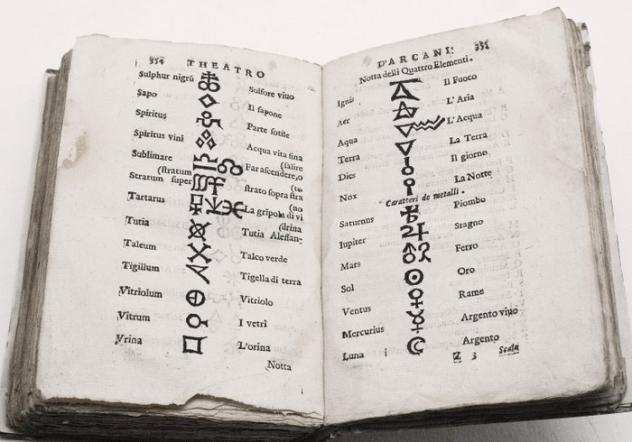 THEATRO
Sulphur nigrū Solfore viuo
Sapo Il sapone
Spiritus Parte sotile
Spiritus vini Acqua vita fina
Sublimare (salire
(stratum Far ascendere, o
Stratum super strato sopra stra
(to
Tartarus La gripola di vi
(no
Tutia Tutia Alessan-
(drina
Talcum Talco verde
Tigillum Tigella di terra
Vitriolum Vitriolo
Vitrum I vetri
Vrina L'orina
Notta
D'ARCANI.
Notta delli Quattro Elementi.
Ignis Il Fuoco
Aer L'Aria
Aqua L'Acqua
Terra La Terra
Dies Il giorno
Nox La Notte
Caratteri de metalli.
Saturnus Piombo
Iupiter Stagno
Mars Ferro
Sol Oro
Ventus Rame
Mercurius Argento viuo
Luna Argento
Z 3 Scala